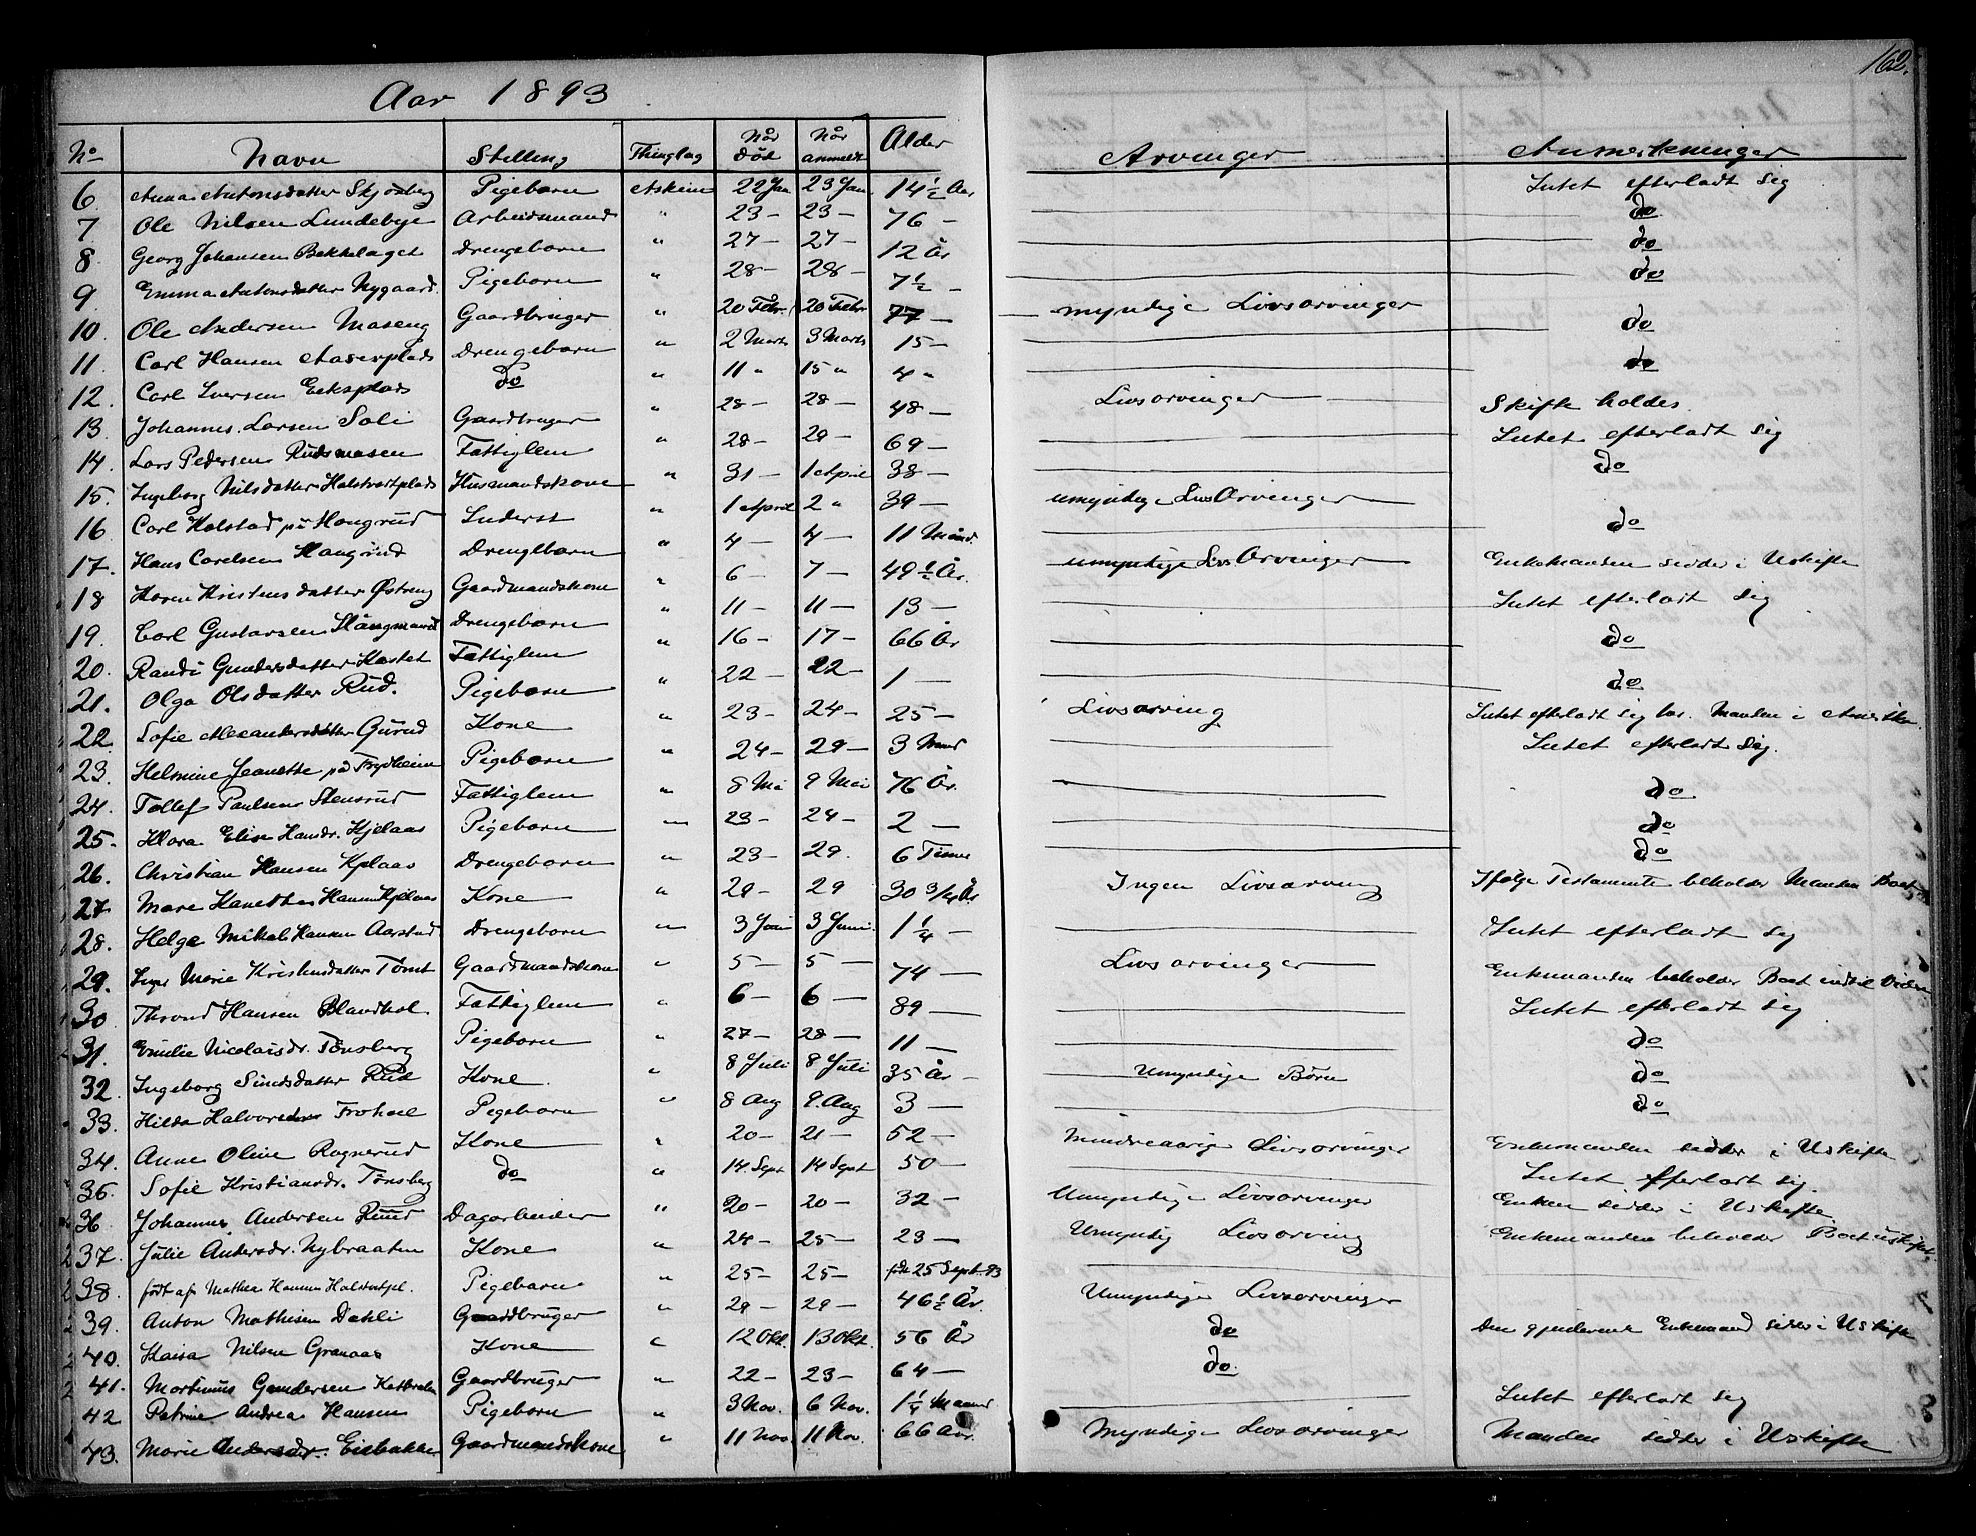 162.
Aar 1893
No Navn Stilling Thinglag Når död Når anmeldt Alder Arvinger Anmerkninger
6. Anna Antonsdatter Skjönberg Pigebarn Askim 22 Jan 23 Jan 14 ½ År — Intet efterladt sig
7 Ole Nilsen Lundebye Arbeidsmand " 23 — 23 — 76 — do
8 Georg Johansen Bakkelaget Drengebarn " 27 — 27 — 12 År — do
9 Emma Antonsdatter Nygaard. Pigebarn " 28 — 28 — 7 ½ — do
10. Ole Andersen Maseng Gaardbruger " 20 Febr. 20 Febr 77 — myndige Livsarvinger
11. Carl Hansen Aaserplads Drengebarn " 2 Marts 3 Marts 15 — do
12. Carl Iversen Eeksplads do " 11 " 15 " 4 " do
13. Johannes Larsen Soli Gaardbruger " 28 — 28 — 48 — Livsarvinger — Skifte holdes.
14. Lars Pedersen Rudsmosen Fattiglem " 28 — 29 — 69 — Intet efterladt sig
15. Ingeborg Nilsdatter Halstvetplads Husmandskone " 31 — 1 April 38 — do
16 Carl Halstad på Haugrud Inderst " 1 April 2 " 39 — umyndige Livs Arvinger —
17. Hans Carelsen Haugrud Drengebarn " 4 — 4 — 11 Måned. — do
18 Karen Kristensdatter Østreng Gaardmandskone " 6 — 7 — 49 ½ År. umyndige Livs Arvinger — Enkemanden sidder i Uskifte
19. Carl Gustavsen Drengebarn " 11 — 11 — 13 — Intet efterladt sig
20. Randi Gundersdatter Kastet Fattiglem " 16 — 17 — 66 År — do
21. Olga Olsdatter Rud. Pigebarn " 22 — 22 — 1 — do
22. Sofie Alexandersdatter Gurud Kone " 23 — 24 — 25 — Livsarving Intet efterladt sig Manden i Amerika
23. Helmine Jeanette på Frydheim Pigebarn " 24 — 29 — 3 Mand — Intet efterladt sig.
24. Tollef Paulsen Stensrud Fattiglem " 8 Mai 9 Mai 76 År. — do
25. Klara Elise Hansdr. Kjelaas Pigebarn " 23 — 24 — 2 — do
26. Christian Hansen Kjelaas Drengebarn " 23 — 29. 6 Timer — do
27 Mare Hansen Kjelaas Kone " 29 — 29 30 3/4 År Ingen Livsarving Ifølge Testamente beholder Manden Boet
28. Helge Mikal Hansen Aarstad Drengebarn " 3 Juni 3 Juni. 1 ¼ — Intet efterladt sig
29. Inger Marie Kristensdatter Tømt Gaardmandskone " 5 — 5 — 74 — Livsarvinger — Enkemanden beholder Boet indtil Videre
30 Thrond Hansen Blandhol. Fattiglem " 6 — 6 — 89 — Intet efterladt sig
31. Emilie Nicolaisdr. Tønsberg Pigebarn " 27 — 28 — 11 — do
32. Ingeborg Simdsdatter Rud Kone. " 8 Juli 8 Juli 35 År — Umyndige Børn do
33. Hilda Halvorsdatter Frohael Pigebarn " 8 Aug 9. Aug 3 — do
34. Anne Oline Rognerud Kone " 20 — 21 — 52 — Mindreaarige Livsarvinger Enkemanden sidder i Uskifte
35. Sofie Kristiansdr. Tønsberg do " 14 Sept 14 Sept 50 — Intet efterladt sig.
36 Johannes Andersen Ruud Dagarbeider " 20 — 20 — 32 — Umyndige Livsarvinger Enken sidder i Uskifte
37. Julie Andersdr. Nybraaten Kone " 24 — 25 — 23 — Umyndig Livsarving Enkemanden beholder Boet uskiftet
38. født af Mathea Hansen Halstvetpl. Pigebarn " 25 — 25 — født 25 Sept. 93 —
39. Anton Mathisen Dahli Gaardbruger " 29 — 29 — 46 ½ År. Umyndige Livsarvinger
40. Kaisa Nilsen Granaas Kone " 12 Okt. 13 Okt. 56 År do Den gjenlevende Enkemand sidder i Uskifte
41. Martinus Gundersen Gaardbruger " 22 — 23 — 64 — do.
42 Petrine Andrea Hansen Pigebarn " 3 Nov. 6 Nov. 1 ¼ Maaned — Intet efterladt sig
43. Marie Andersdr. Eisbakke Gaardmandskone " 11 Nov. 11 Nov. 66 År. Myndige Livsarvinger Manden sidder i Uskifte